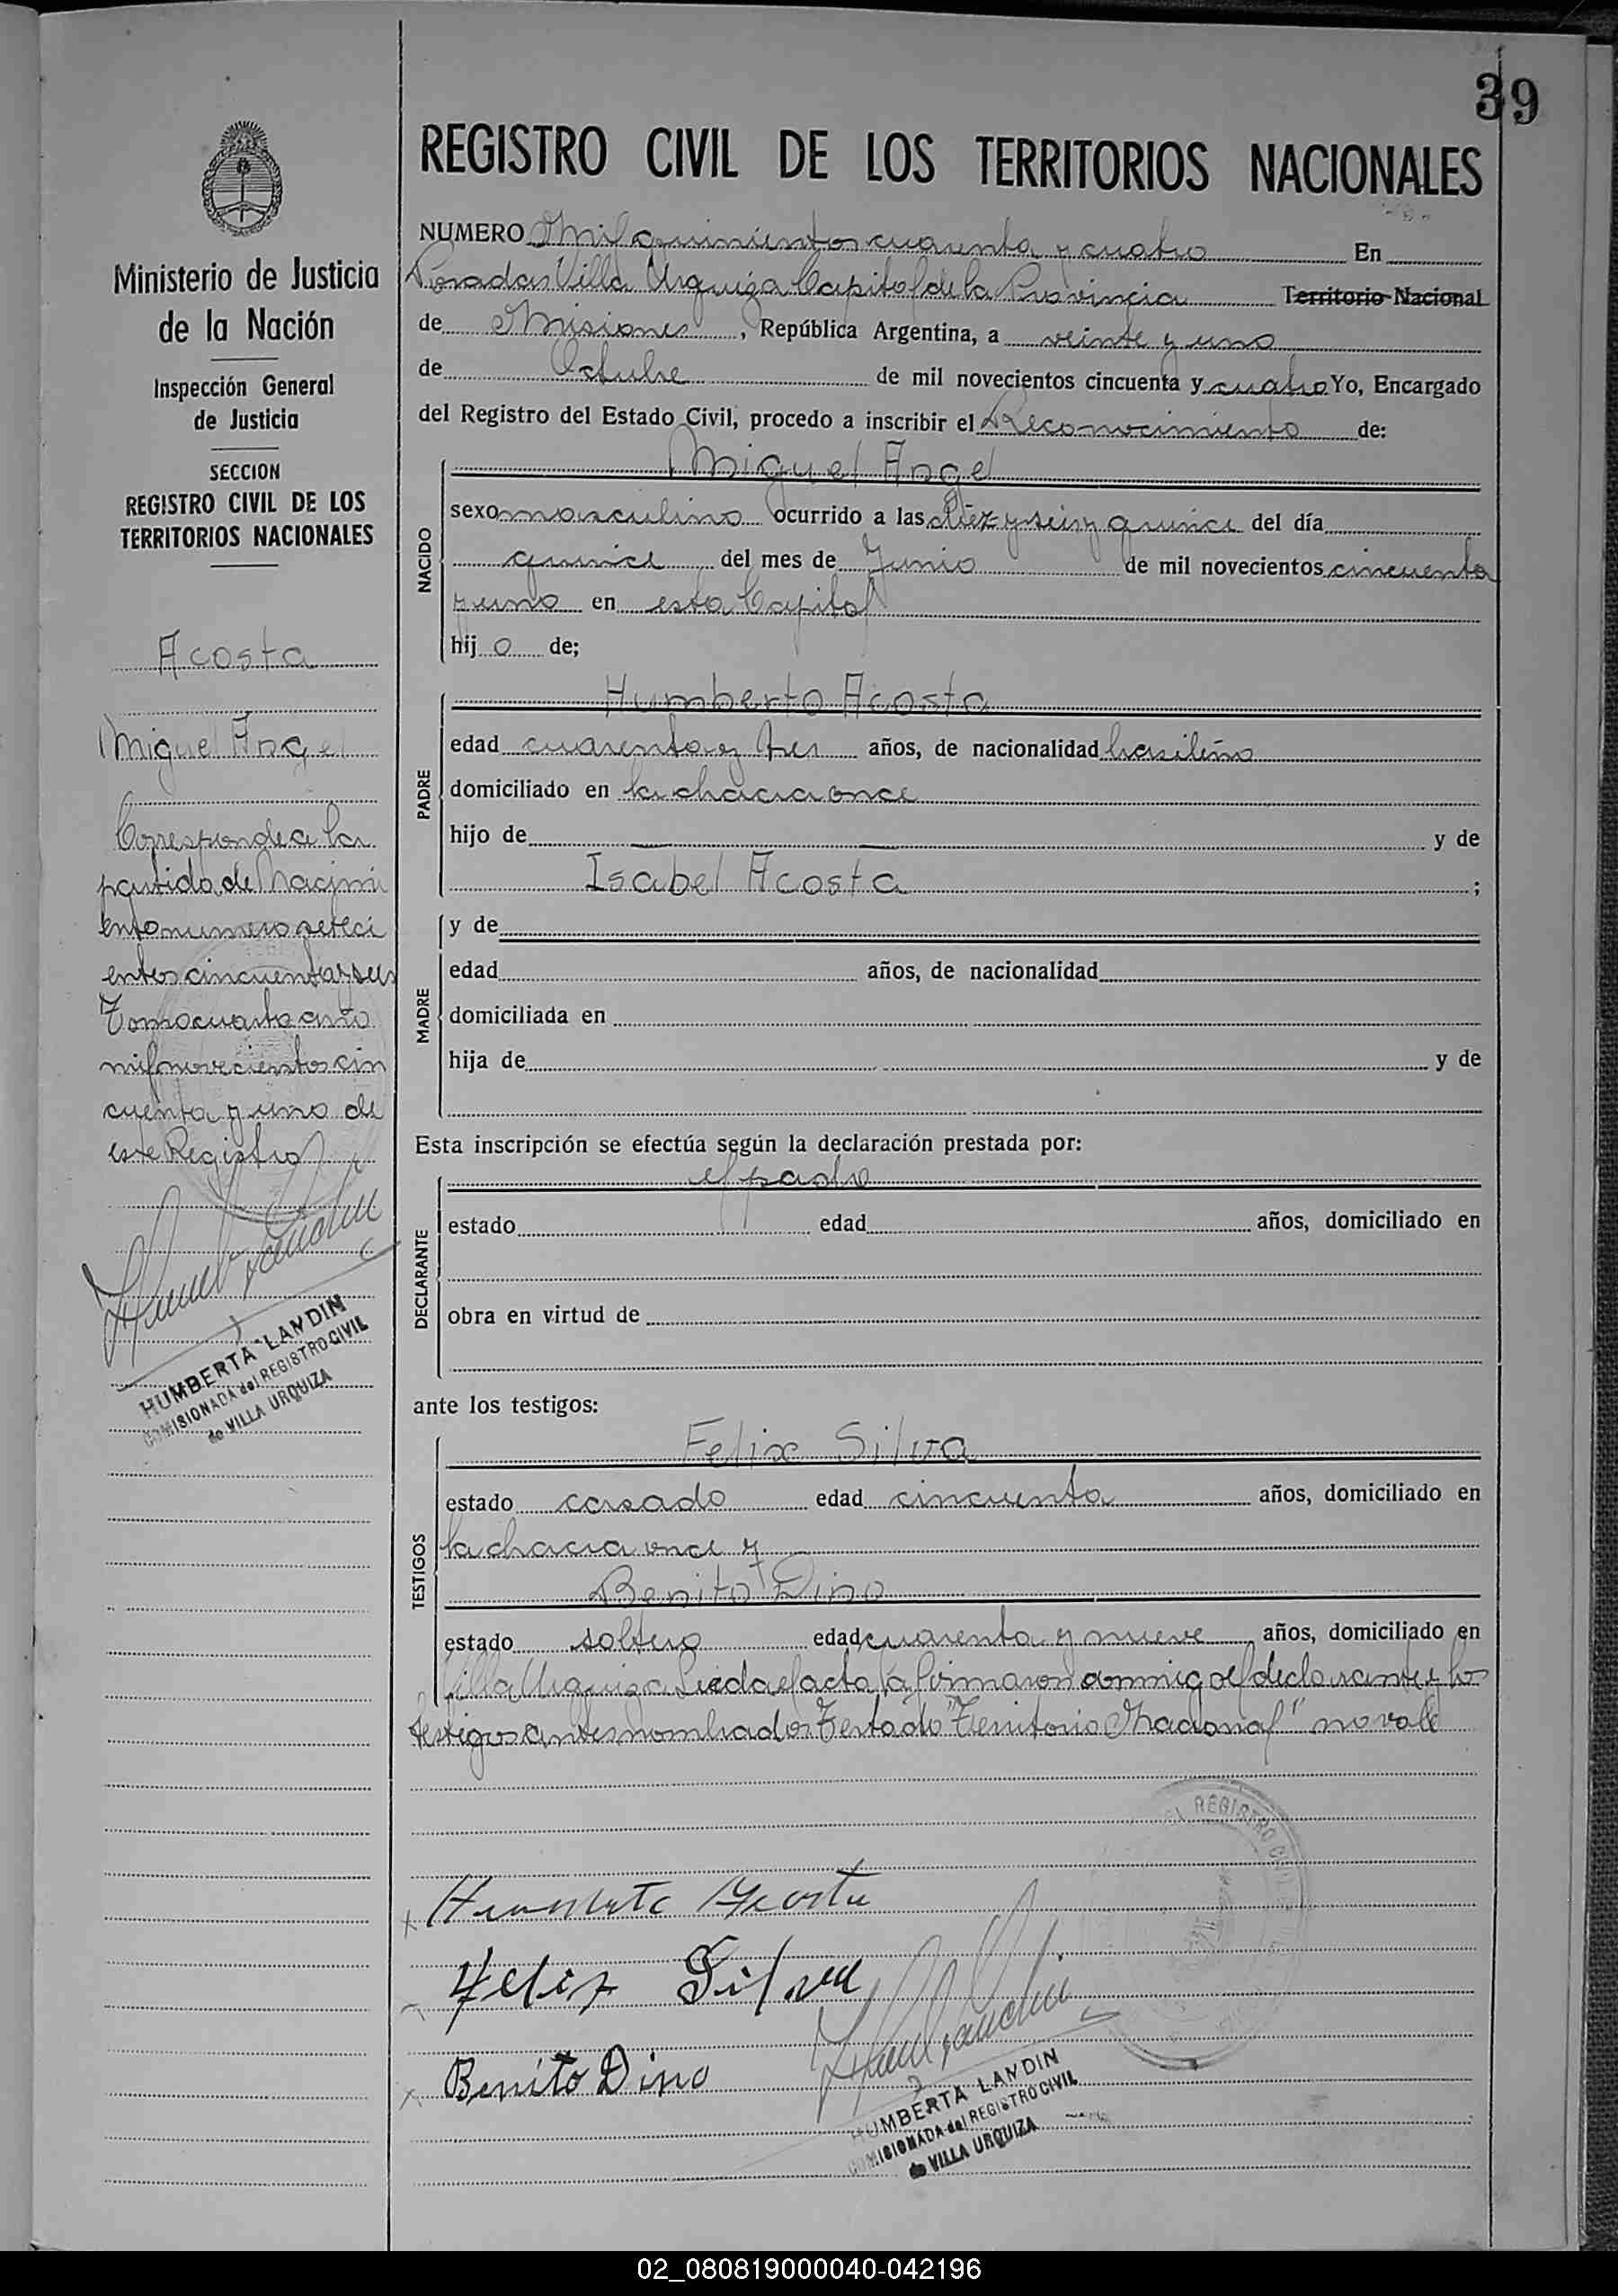 39
REGISTRO CIVIL DE LOS TERRITORIOS NACIONALES
Ministerio de Justicia
de la Nación
Inspección General
de Justicia
SECCION
REGISTRO CIVIL DE LOS
TERRITORIOS NACIONALES
Acosta
Miguel Angel
Corresponde a la
partida de Nacimi
ento numero seteci
entos cincuenta y seis
Tomo cuarto año
mil novecientos cin
cuenta y uno de
este Registro
HUMBERTA LANDIN
COMISIONADA del REGISTRO CIVIL
de VILLA URQUIZA
NUMERO Mil quinientos cuarenta y cuatro En
Posadas Villa Urquiza Capital de la Provincia Territorio Nacional
de Misiones, República Argentina, a veinte y uno
de Octubre de mil novecientos cincuenta y cuatro Yo, Encargado
del Registro del Estado Civil, procedo a inscribir el Reconocimiento de:
NACIDO
Miguel Angel
sexo masculino ocurrido a las diez y seis y quince del día
quince del mes de Junio de mil novecientos cincuenta
y uno en esta Capital
hij o de;
PADRE
Humberto Acosta
edad cuarenta y tres años, de nacionalidad brasileño
domiciliado en la chacra once
hijo de y de
Isabel Acosta ;
MADRE
y de
edad años, de nacionalidad
domiciliada en
hija de y de
Esta inscripción se efectúa según la declaración prestada por:
DECLARANTE
el padre
estado edad años, domiciliado en
obra en virtud de
ante los testigos:
TESTIGOS
Felix Silva
estado casado edad cincuenta años, domiciliado en
la chacra once y
Benito Dino
estado soltero edad cuarenta y nueve años, domiciliado en
Villa Urquiza Leida el acta la firmaron conmigo el declarante y los
testigos antes nombrados Testado "Territorio Nacional" no vale
Humberto Acosta
Felix Silva
Benito Dino
REGISTRO CIVIL
HUMBERTA LANDIN
COMISIONADA del REGISTRO CIVIL
de VILLA URQUIZA
02_080819000040-042196